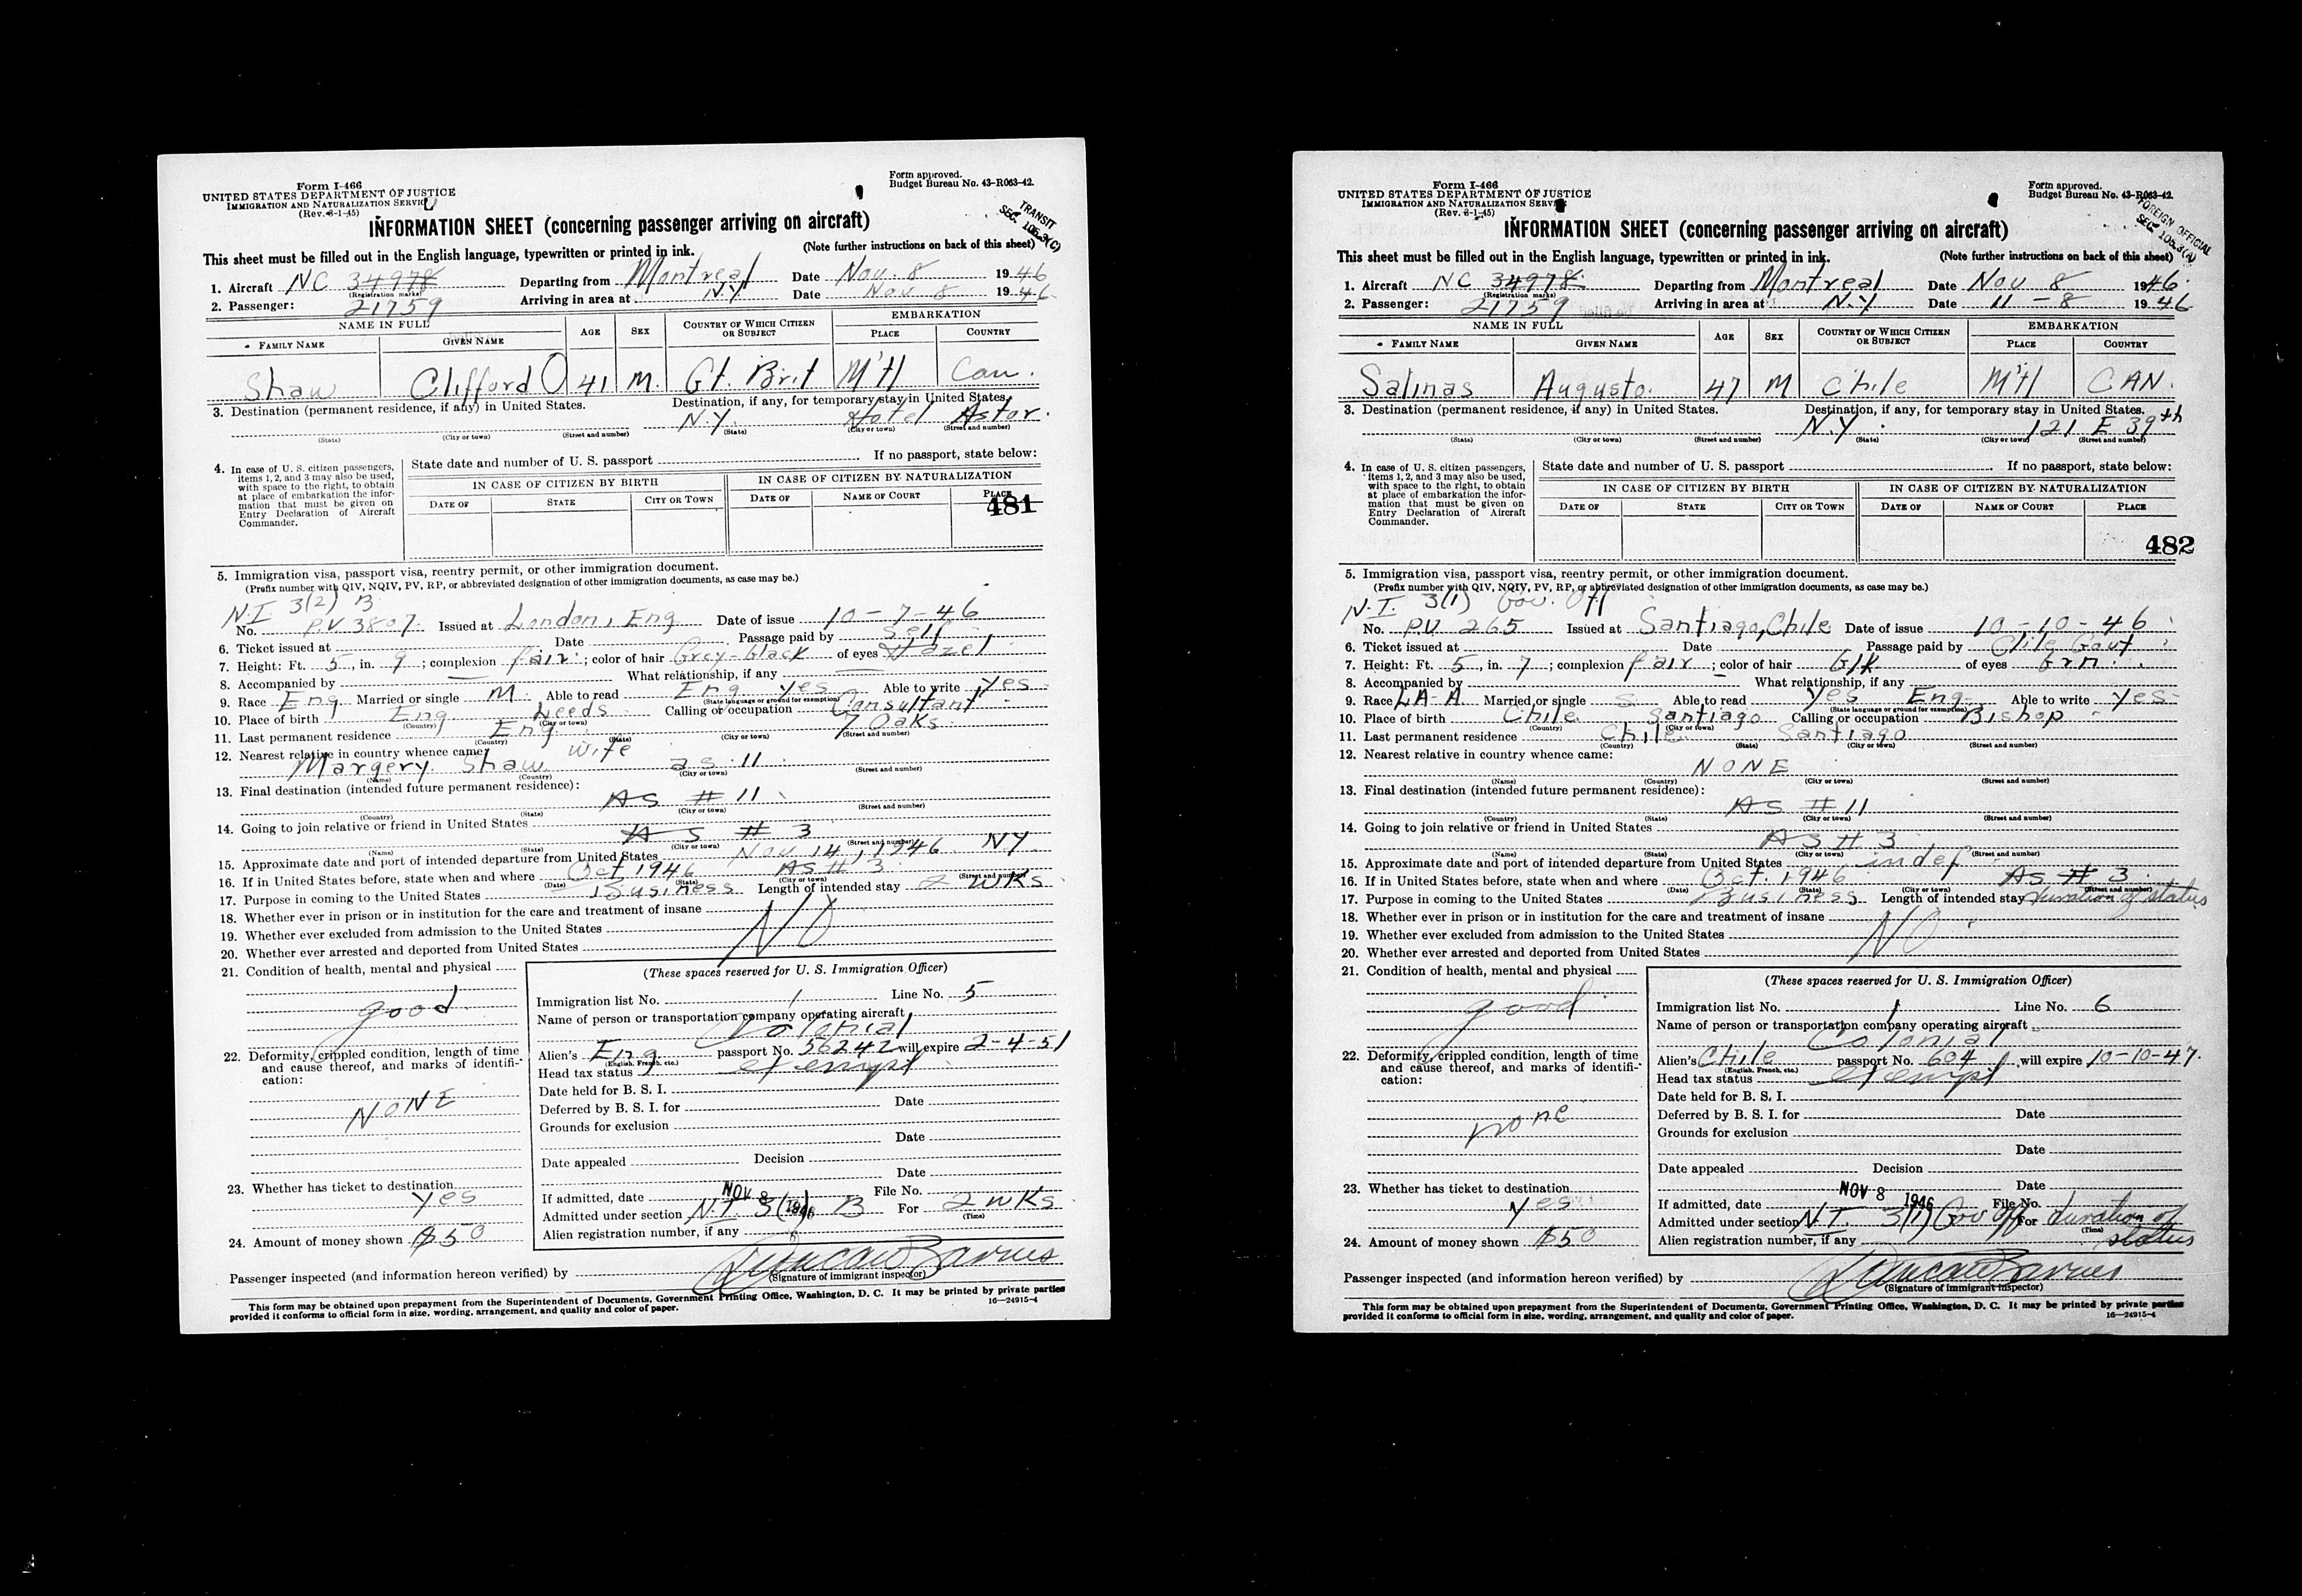 Form I-466
UNITED STATES DEPARTMENT OF JUSTICE
IMMIGRATION AND NATURALIZATION SERVICE
(Rev. 8-1-45)
Form approved.
Budget Bureau No. 43-R063-42.
TRANSIT
SEC. 106.3(C)
INFORMATION SHEET (concerning passenger arriving on aircraft)
This sheet must be filled out in the English language, typewritten or printed in ink. (Note further instructions on back of this sheet)
1. Aircraft NC 34978 Departing from Montreal Date Nov. 8 1946
(Registration marks)
2. Passenger: 21759 Arriving in area at N.Y Date Nov 8 1946
NAME IN FULL AGE SEX COUNTRY OF WHICH CITIZEN OR SUBJECT EMBARKATION
FAMILY NAME GIVEN NAME PLACE COUNTRY
Shaw Clifford O 41 M. Gt. Brit M'tl Can.
3. Destination (permanent residence, if any) in United States. Destination, if any, for temporary stay in United States.
N.Y. Hotel Astor.
(State) (City or town) (Street and number) (State) (City or town) (Street and number)
4. In case of U. S. citizen passengers, items 1, 2, and 3 may also be used, with space to the right, to obtain at place of embarkation the information that must be given on Entry Declaration of Aircraft Commander.
State date and number of U. S. passport If no passport, state below:
IN CASE OF CITIZEN BY BIRTH IN CASE OF CITIZEN BY NATURALIZATION
DATE OF STATE CITY OR TOWN DATE OF NAME OF COURT PLACE
481
5. Immigration visa, passport visa, reentry permit, or other immigration document.
(Prefix number with QIV, NQIV, PV, RP, or abbreviated designation of other immigration documents, as case may be.)
N.I. 3(2) B
No. P.V 3807 Issued at London, Eng Date of issue 10-7-46
6. Ticket issued at Date Passage paid by Self
7. Height: Ft. 5, in. 9; complexion fair; color of hair Grey-black of eyes Hazel
8. Accompanied by What relationship, if any
9. Race Eng Married or single M. Able to read Eng yes Able to write yes
(State language or ground for exemption)
10. Place of birth Eng Leeds Calling or occupation Consultant
(Country) (City or town)
11. Last permanent residence Eng 7 Oaks
(Country) (State) (City or town) (Street and number)
12. Nearest relative in country whence came: wife
Margery Shaw as 11
(Name) (Country) (City or town) (Street and number)
13. Final destination (intended future permanent residence):
AS # 11
(Country) (State) (City or town) (Street and number)
14. Going to join relative or friend in United States
AS # 3
(Name) (State) (City or town) (Street and number)
15. Approximate date and port of intended departure from United States Nov 14, 1946 NY
16. If in United States before, state when and where Oct 1946 AS # 3
(Date) (State) (City or town) (Street and number)
17. Purpose in coming to the United States Business Length of intended stay 2 wks
18. Whether ever in prison or in institution for the care and treatment of insane
19. Whether ever excluded from admission to the United States NO
20. Whether ever arrested and deported from United States
21. Condition of health, mental and physical
good
22. Deformity, crippled condition, length of time and cause thereof, and marks of identification:
NONE
23. Whether has ticket to destination
yes
24. Amount of money shown $50
(These spaces reserved for U. S. Immigration Officer)
Immigration list No. 1 Line No. 5
Name of person or transportation company operating aircraft
Colonial
Alien's Eng passport No. 56242 will expire 2-4-51
(English, French, etc.)
Head tax status exempt
Date held for B. S. I.
Deferred by B. S. I. for Date
Grounds for exclusion
Date
Date appealed Decision
Date
If admitted, date NOV 8 1946 File No.
Admitted under section N.I. 3(2) B For 2 wks
(Time)
Alien registration number, if any
Passenger inspected (and information hereon verified) by Duncan Barnes
(Signature of immigrant inspector)
This form may be obtained upon prepayment from the Superintendent of Documents, Government Printing Office, Washington, D. C. It may be printed by private parties
provided it conforms to official form in size, wording, arrangement, and quality and color of paper. 16—24915-4
Form I-466
UNITED STATES DEPARTMENT OF JUSTICE
IMMIGRATION AND NATURALIZATION SERVICE
(Rev. 8-1-45)
Form approved.
Budget Bureau No. 43-R063-42.
FOREIGN OFFICIAL
SEC. 106.3(a)
INFORMATION SHEET (concerning passenger arriving on aircraft)
This sheet must be filled out in the English language, typewritten or printed in ink. (Note further instructions on back of this sheet)
1. Aircraft NC 34978 Departing from Montreal Date Nov 8 1946
(Registration marks)
2. Passenger: 21759 Arriving in area at N.Y Date 11-8 1946
NAME IN FULL AGE SEX COUNTRY OF WHICH CITIZEN OR SUBJECT EMBARKATION
FAMILY NAME GIVEN NAME PLACE COUNTRY
Salinas Augusto. 47 M Chile M'tl CAN.
3. Destination (permanent residence, if any) in United States. Destination, if any, for temporary stay in United States.
N.Y. 121 E 39th
(State) (City or town) (Street and number) (State) (City or town) (Street and number)
4. In case of U. S. citizen passengers, items 1, 2, and 3 may also be used, with space to the right, to obtain at place of embarkation the information that must be given on Entry Declaration of Aircraft Commander.
State date and number of U. S. passport If no passport, state below:
IN CASE OF CITIZEN BY BIRTH IN CASE OF CITIZEN BY NATURALIZATION
DATE OF STATE CITY OR TOWN DATE OF NAME OF COURT PLACE
482
5. Immigration visa, passport visa, reentry permit, or other immigration document.
(Prefix number with QIV, NQIV, PV, RP, or abbreviated designation of other immigration documents, as case may be.)
N.I. 3(1) Gov. Off
No. PV 265 Issued at Santiago, Chile Date of issue 10-10-46
6. Ticket issued at Date Passage paid by Chile Govt
7. Height: Ft. 5, in. 7; complexion fair; color of hair Blk of eyes Brn.
8. Accompanied by What relationship, if any
9. Race LA-A Married or single S Able to read yes Eng Able to write yes
(State language or ground for exemption)
10. Place of birth Chile Santiago Calling or occupation Bishop
(Country) (City or town)
11. Last permanent residence Chile Santiago
(Country) (State) (City or town) (Street and number)
12. Nearest relative in country whence came:
NONE
(Name) (Country) (City or town) (Street and number)
13. Final destination (intended future permanent residence):
AS # 11
(Country) (State) (City or town) (Street and number)
14. Going to join relative or friend in United States
AS # 3
(Name) (State) (City or town) (Street and number)
15. Approximate date and port of intended departure from United States indef
16. If in United States before, state when and where Oct. 1946 AS # 3
(Date) (State) (City or town) (Street and number)
17. Purpose in coming to the United States Business Length of intended stay duration of status
18. Whether ever in prison or in institution for the care and treatment of insane
19. Whether ever excluded from admission to the United States NO
20. Whether ever arrested and deported from United States
21. Condition of health, mental and physical
good
22. Deformity, crippled condition, length of time and cause thereof, and marks of identification:
none
23. Whether has ticket to destination
yes
24. Amount of money shown $50
(These spaces reserved for U. S. Immigration Officer)
Immigration list No. 1 Line No. 6
Name of person or transportation company operating aircraft
Colonial
Alien's Chile passport No. 604 will expire 10-10-47.
(English, French, etc.)
Head tax status exempt
Date held for B. S. I.
Deferred by B. S. I. for Date
Grounds for exclusion
Date
Date appealed Decision
Date
If admitted, date NOV 8 1946 File No.
Admitted under section N.I. 3(1) Gov Off For duration of status
(Time)
Alien registration number, if any
Passenger inspected (and information hereon verified) by Duncan Barnes
(Signature of immigrant inspector)
This form may be obtained upon prepayment from the Superintendent of Documents, Government Printing Office, Washington, D. C. It may be printed by private parties
provided it conforms to official form in size, wording, arrangement, and quality and color of paper. 16—24915-4